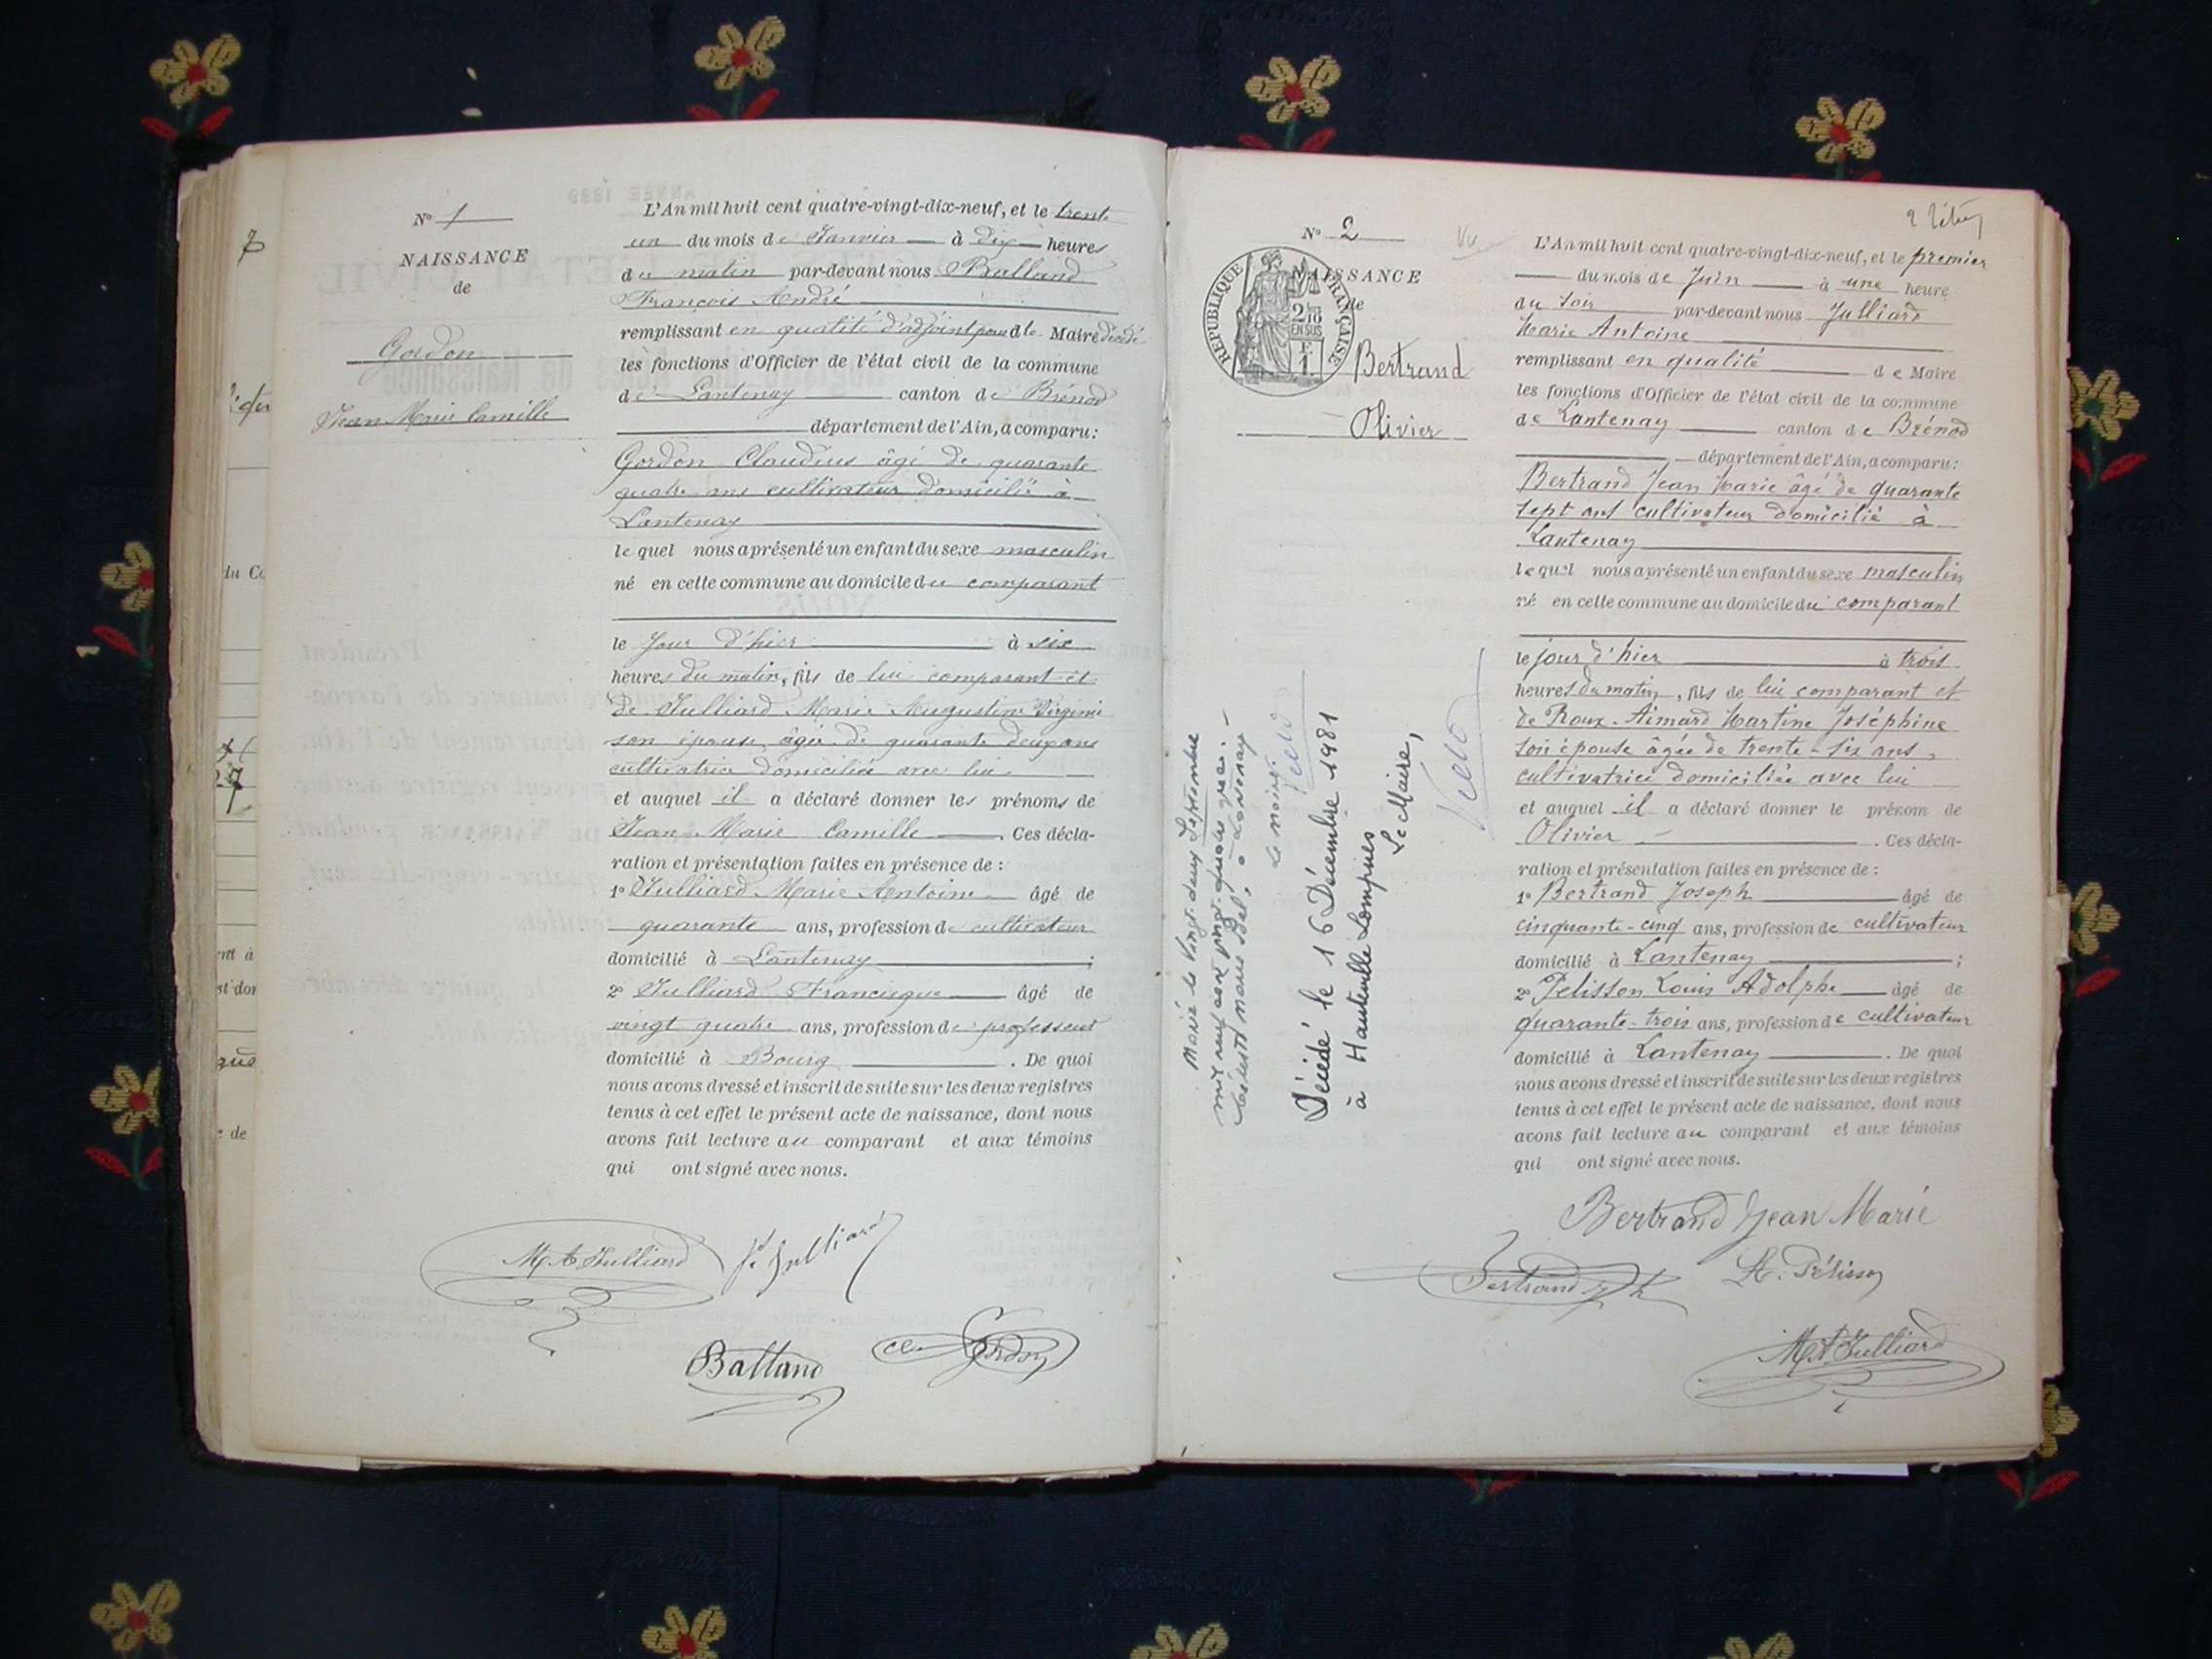 N° 1
NAISSANCE
de
Gordon
Jean Marie Camille
L'An mil huit cent quatre-vingt-dix-neuf, et le trente
un du mois de Janvier à dix heures
du matin par-devant nous Balland
François André
remplissant en qualité d'adjoint pour le Maire décédé
les fonctions d'Officier de l'état civil de la commune
de Lantenay canton de Brénod
département de l'Ain, a comparu:
Gordon Claudius âgé de quarante
quatre ans cultivateur domicilié à
Lantenay
lequel nous a présenté un enfant du sexe masculin
né en cette commune au domicile du comparant
le jour d'hier à six
heures du matin, fils de lui comparant et
de Julliard Marie Augustine Virginie
son épouse, âgée de quarante deux ans
cultivatrice domiciliée avec lui
et auquel il a déclaré donner les prénoms de
Jean Marie Camille. Ces décla-
ration et présentation faites en présence de :
1° Julliard Marie Antoine âgé de
quarante ans, profession de cultivateur
domicilié à Lantenay ;
2° Julliard Francisque âgé de
vingt quatre ans, profession de professeur
domicilié à Bourg. De quoi
nous avons dressé et inscrit de suite sur les deux registres
tenus à cet effet le présent acte de naissance, dont nous
avons fait lecture au comparant et aux témoins
qui ont signé avec nous.
M A Julliard Julliard
Balland Cl Gordon
N° 2
Vu
NAISSANCE
de
REPUBLIQUE FRANÇAISE
2/10
EN SUS
F.
1.
Bertrand
Olivier
Marié le vingt-deux Septembre
mil neuf cent vingt-quatre avec
Marie à Lantenay
Le maire
Décédé le 16 Décembre 1981
à Hauteville-Lompnes
Le Maire,
L'An mil huit cent quatre-vingt-dix-neuf, et le premier
du mois de Juin à une heure
du soir par-devant nous Julliard
Marie Antoine
remplissant en qualité de Maire
les fonctions d'Officier de l'état civil de la commune
de Lantenay canton de Brénod
département de l'Ain, a comparu:
Bertrand Jean Marie âgé de quarante
sept ans cultivateur domicilié à
Lantenay
lequel nous a présenté un enfant du sexe masculin
né en cette commune au domicile du comparant
le jour d'hier à trois
heures du matin, fils de lui comparant et
de Roux-Aimard Martine Joséphine
son épouse âgée de trente-six ans,
cultivatrice domiciliée avec lui
et auquel il a déclaré donner le prénom de
Olivier. Ces décla-
ration et présentation faites en présence de :
1° Bertrand Joseph âgé de
cinquante-cinq ans, profession de cultivateur
domicilié à Lantenay ;
2° Pélisson Louis Adolphe âgé de
quarante-trois ans, profession de cultivateur
domicilié à Lantenay. De quoi
nous avons dressé et inscrit de suite sur les deux registres
tenus à cet effet le présent acte de naissance, dont nous
avons fait lecture au comparant et aux témoins
qui ont signé avec nous.
Bertrand Jean Marie
Bertrand Jph A. Pélisson
M A Julliard